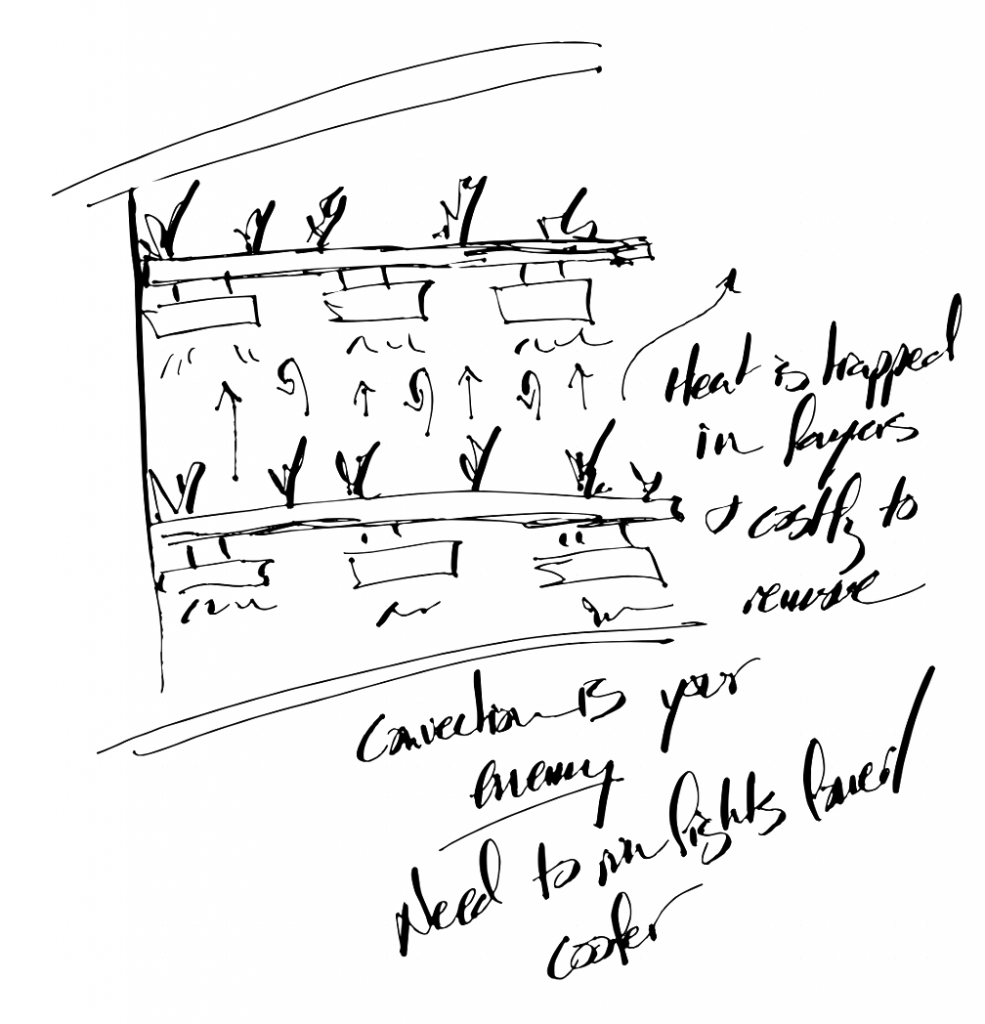 Heat is trapped
in layers
& costly to
remove
Convection is your
enemy
Need to run lights lower/
cooler